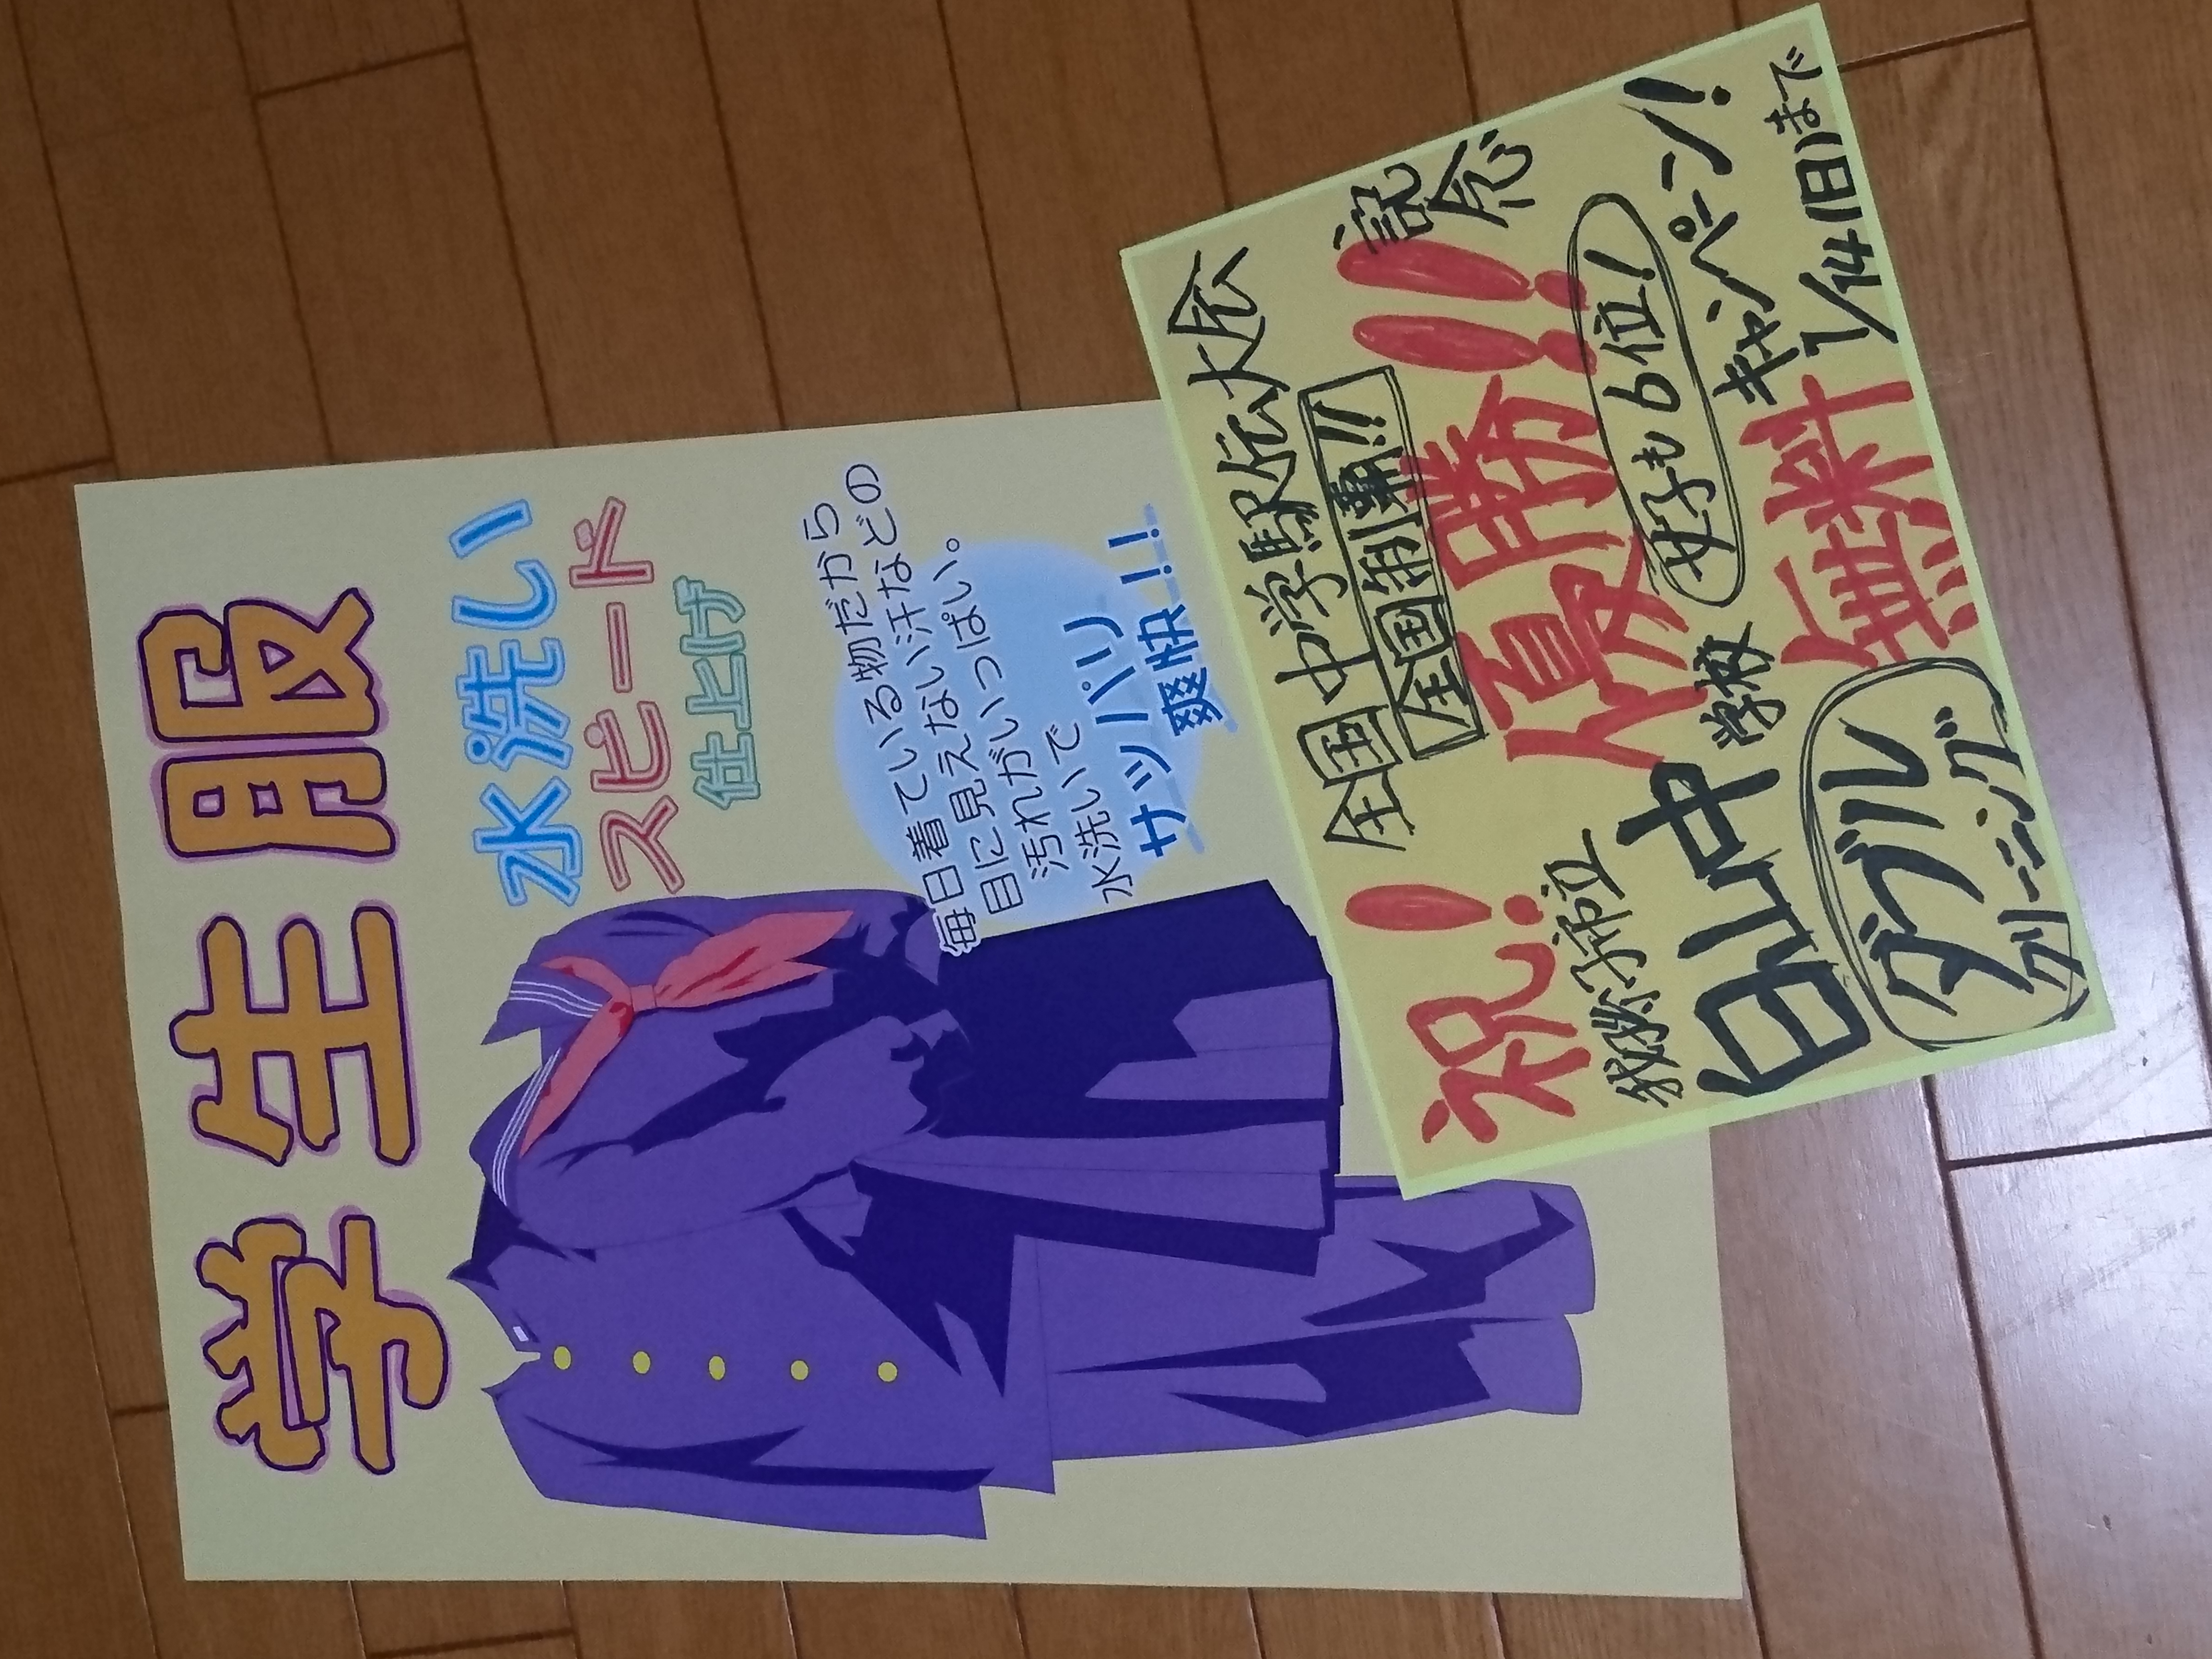 学生服
水洗い
スピード
仕上げ
毎日着ている物だから
目に見えない汗などの
汚れがいっぱい。
水洗いで
サッパリ
爽快!!
全国中学駅伝大会
全国制覇!!
祝! 優勝!! 記念
女子も6位!
桂中学校
キャンペーン!
ダブル
クリーニング
無料
1/14日まで